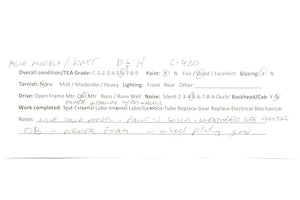 ALCO MODELS / KMT D&H C-420
Overall condition/TCA Grade: C-1-2-3-4-5-6-7-8-9 Paint: Y N Fair / Good / Excellent. Glazing: Y N
Tarnish: None Mild / Moderate / Heavy Lighting: Front Rear Other
Drive: Open Frame Mtr Can Mtr Runs / Runs Well Noise: Silent-2-3-4-5-6-7-8-9-Ouch / Backhead/Cab: Y N
Work completed: Test-External Lube-Internal Lube/Gearbox-Tube Replace-Gear Replace-Electrical-Mechanical
Notes: NICE SOLID MODEL - PAINT IS GOOD - WEATHERED SEE PHOTOS -
OB - NEWER FOAM wheel plating